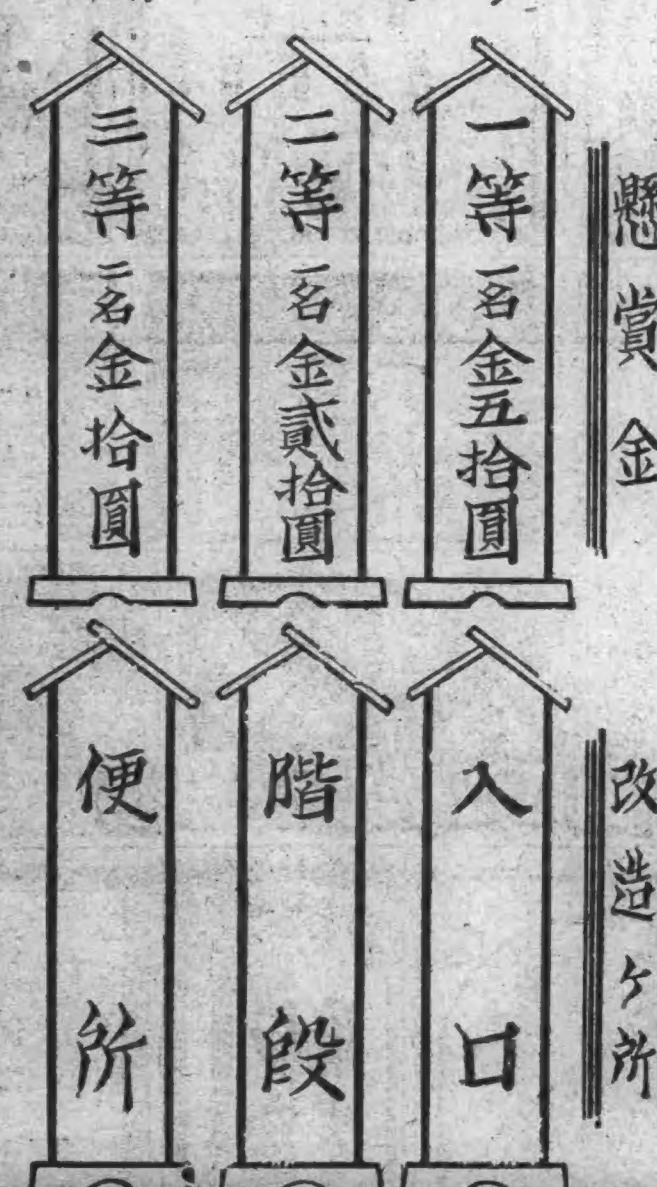 懸賞金
一等 一名 金五拾圓
二等 一名 金貳拾圓
三等 二名 金拾圓
改造ヶ所
入口
階段
便所